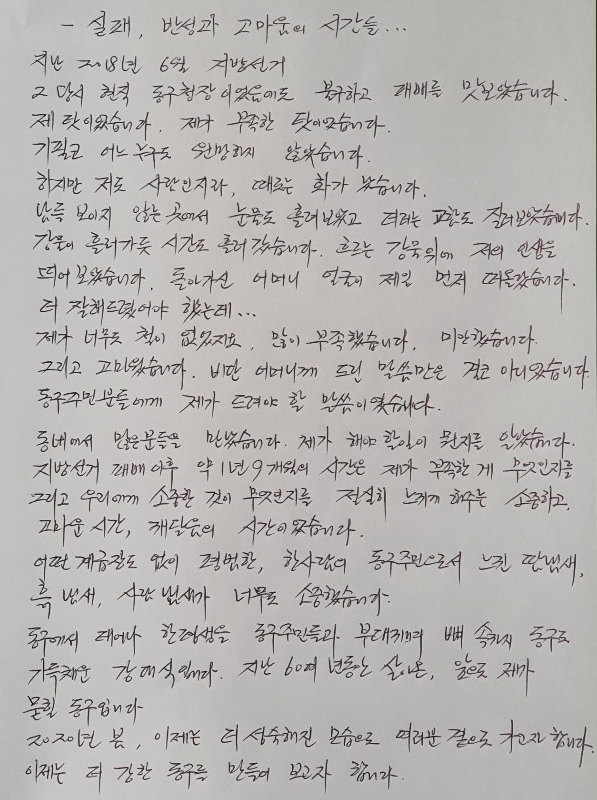 - 실패, 반성과 고마움의 시간들...
지난 2018년 6월 지방선거
그 당시 현직 동구청장이었음에도 불구하고 패배를 맛보았습니다.
제 탓이었습니다. 제가 부족한 탓이었습니다.
기필코 어느 누구도 원망하지 않았습니다.
하지만 저도 사람인지라, 때로는 화가 났습니다.
남들 보이지 않는 곳에서 눈물도 흘려보았고 떠나려는 고함도 질러보았습니다.
강물이 흘러가듯 시간도 흘러갔습니다. 흐르는 강물위에 저의 인생을
띄어보았습니다. 돌아가신 어머니 얼굴이 제일 먼저 떠올랐습니다.
더 잘해드렸어야 했는데...
제가 너무도 철이 없었지요, 많이 부족했습니다. 미안했습니다.
그리고 고마웠습니다. 비단 어머니께 드린 말씀만은 결코 아니었습니다
동구주민분들에게 제가 드려야 할 말씀이었습니다.
동네에서 많은분들을 만났습니다. 제가 해야할일이 뭔지를 알았습니다.
지방선거 패배이후 약 1년 9개월의 시간은 제가 부족한 게 무엇인지를
그리고 우리에게 소중한 것이 무엇인지를 절실히 느끼게 해주는 소중하고,
고마운 시간, 깨달음의 시간이었습니다.
어떤 계급장도 없이 평범한, 한사람의 동구주민으로서 느낀 땀냄새,
흙냄새, 사람 냄새가 너무도 소중했습니다.
동구에서 태어나 한평생을 동구주민들과 부대끼며 뼈 속까지 동구로
가득채운 강대식입니다. 지난 60여 년동안 살아온, 앞으로 제가
묻힐 동구입니다
2020년 봄, 이제는 더 성숙해진 모습으로 여러분 곁으로 가고자 합니다.
이제는 더 강한 동구를 만들어 보고자 합니다.